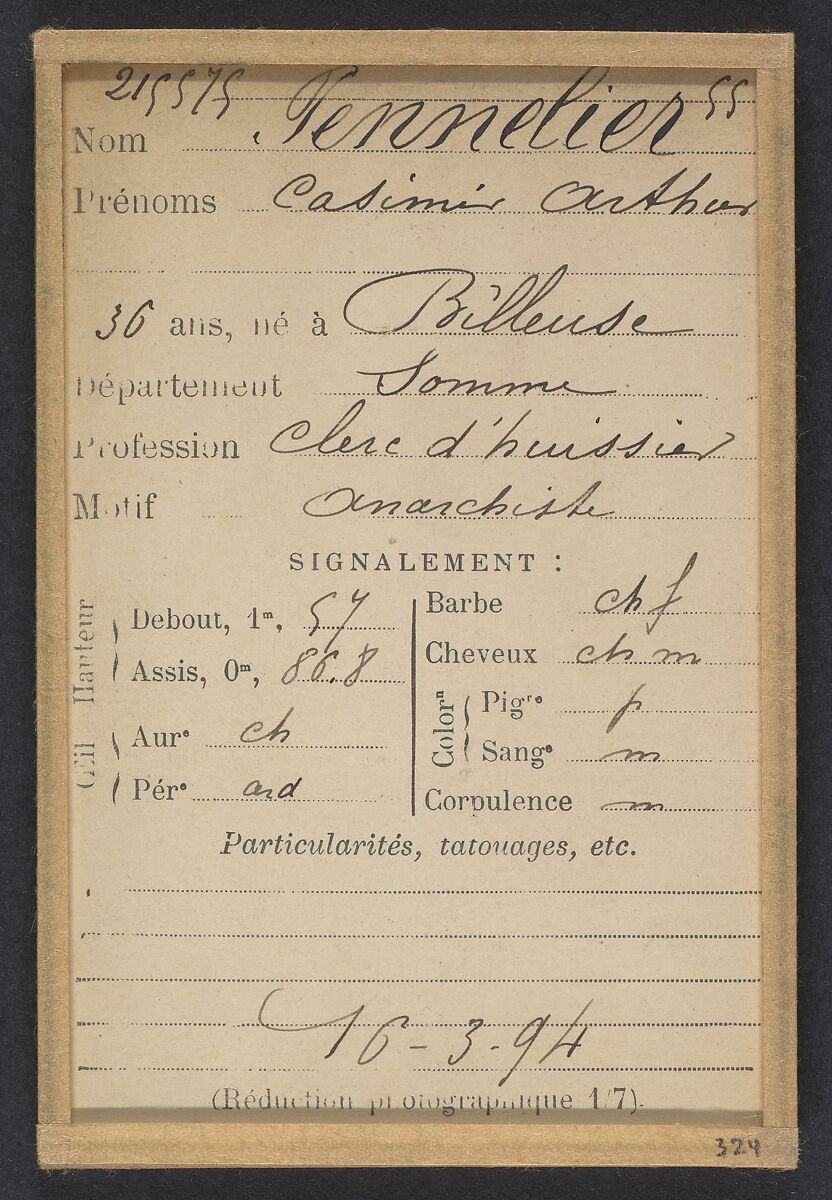 215575 55
Nom Pennelier
Prénoms Casimir Arthur
36 ans, né à Billeuse
Département Somme
Profession Clerc d'huissier
Motif anarchiste
SIGNALEMENT :
Hauteur
Debout, 1m, 57
Assis, 0m, 86.8
Œil
Aure ch
Pére ard
Barbe ch f
Cheveux ch m
Colorn
Pigre p
Sange m
Corpulence m
Particularités, tatouages, etc.
16-3-94
(Réduction photographique 1/7).
324